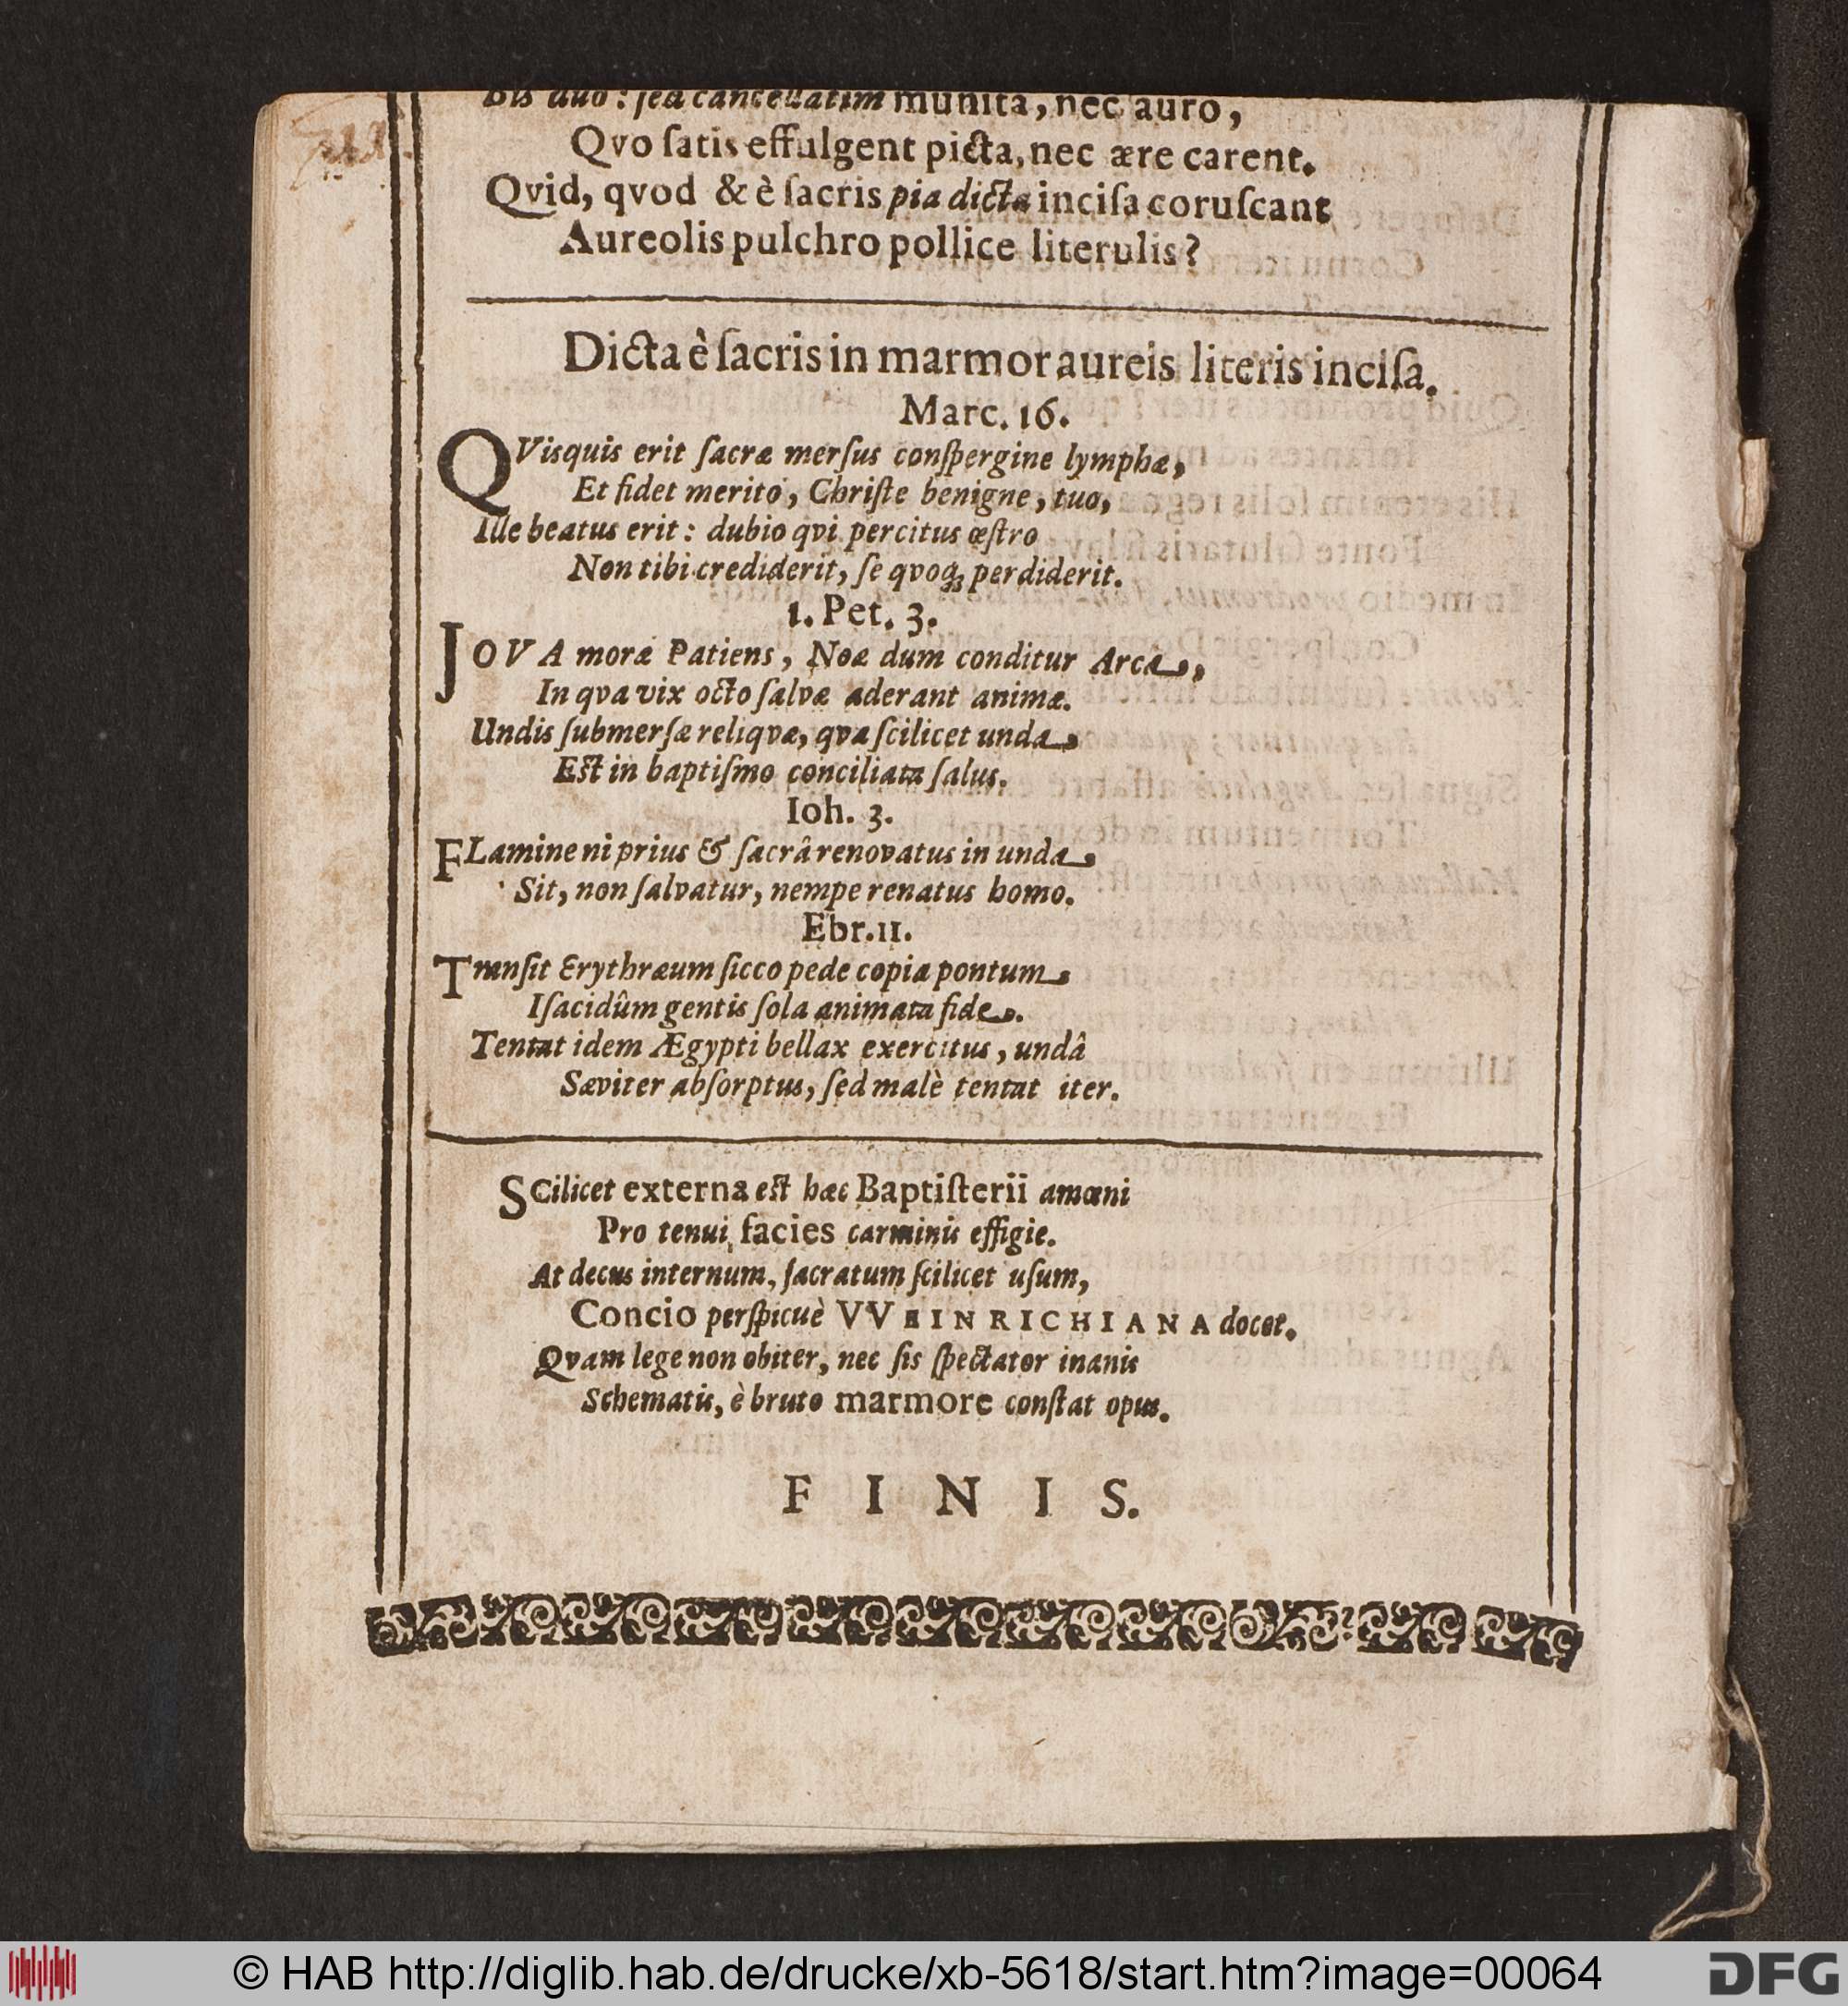 Bis duo: ſed cancellatim munita, nec auro,
Qvo ſatis effulgent picta, nec ære carent.
Qvid, qvod & è ſacris pia dicta inciſa coruſcant
Aureolis pulchro pollice literulis?
Dicta è ſacris in marmor aureis literis inciſa.
Marc. 16.
QVisquis erit ſacræ merſus conſpergine lymphæ,
Et fidet merito, Chriſte benigne, tuo,
Ille beatus erit: dubio qvi percitus œſtro
Non tibi crediderit, ſe qvoq; perdiderit.
1. Pet. 3.
JOVA moræ Patiens, Noæ dum conditur Arca,
In qva vix octo ſalvæ aderant animæ.
Undis ſubmerſæ reliqvæ, qvæ ſcilicet unda
Eſt in baptiſmo conciliata ſalus.
Ioh. 3.
FLamine ni prius & ſacrâ renovatus in unda
Sit, non ſalvatur, nempe renatus homo.
Ebr. 11.
Tranſit Erythræum ſicco pede copia pontum
Iſacidûm gentis ſola animata fide.
Tentat idem Ægypti bellax exercitus, undâ
Sæviter abſorptus, ſed malè tentat iter.
SCilicet externa eſt hæc Baptiſterii amœni
Pro tenui facies carminis effigie.
At decus internum, ſacratum ſcilicet uſum,
Concio perſpicuè VVEINRICHIANA docet.
Qvam lege non obiter, nec ſis ſpectator inanis
Schematis, è bruto marmore conſtat opus.
F I N I S.
© HAB http://diglib.hab.de/drucke/xb-5618/start.htm?image=00064
DFG